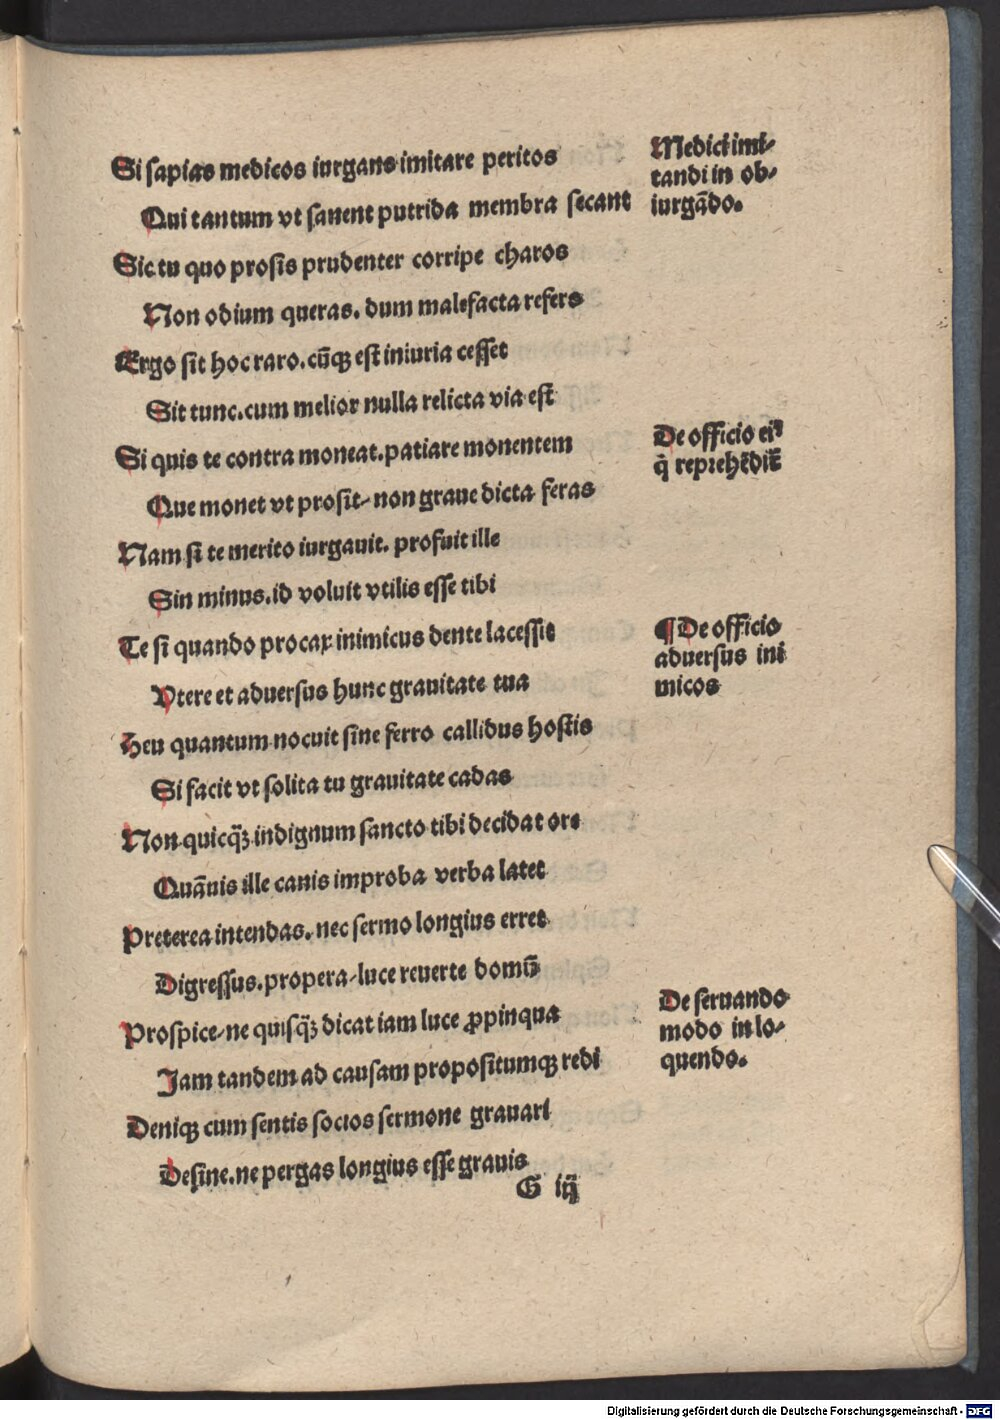 Si sapias medicos iurgans imitare peritos
Qui tantum vt sanent putrida membra secant
Sic tu quo prosis prudenter corripe charos
Non odium queras. dum malefacta refers
Ergo sit hoc raro. cūqꝫ est iniuria cesset
Sit tunc. cum melior nulla relicta via est
Si quis te contra moneat. patiare monentem
Que monet vt prosit, non graue dicta feras
Nam si te merito iurgauit. profuit ille
Sin minus. id voluit vtilis esse tibi
Te si quando procax inimicus dente lacessit
Vtere et aduersus hunc grauitate tua
Heu quantum nocuit sine ferro callidus hostis
Si facit vt solita tu grauitate cadas
Non quicq̄ꝫ indignum sancto tibi decidat ore
Quāuis ille canis improba verba latet
Preterea intendas. nec sermo longius erret
Digressus. propera, luce reuerte domū
Prospice, ne quisq̄ꝫ dicat iam luce ꝓpinqua
Jam tandem ad causam propositumqꝫ redi
Deniqꝫ cum sentis socios sermone grauari
Desine. ne pergas longius esse grauis
G iij
Medici imi-
tandi in ob-
iurgādo.
De officio eiꝰ
q̇ reprehēdit̄
¶ De officio
aduersus ini
micos
De seruando
modo in lo-
quendo.
Digitalisierung gefördert durch die Deutsche Forschungsgemeinschaft - DFG